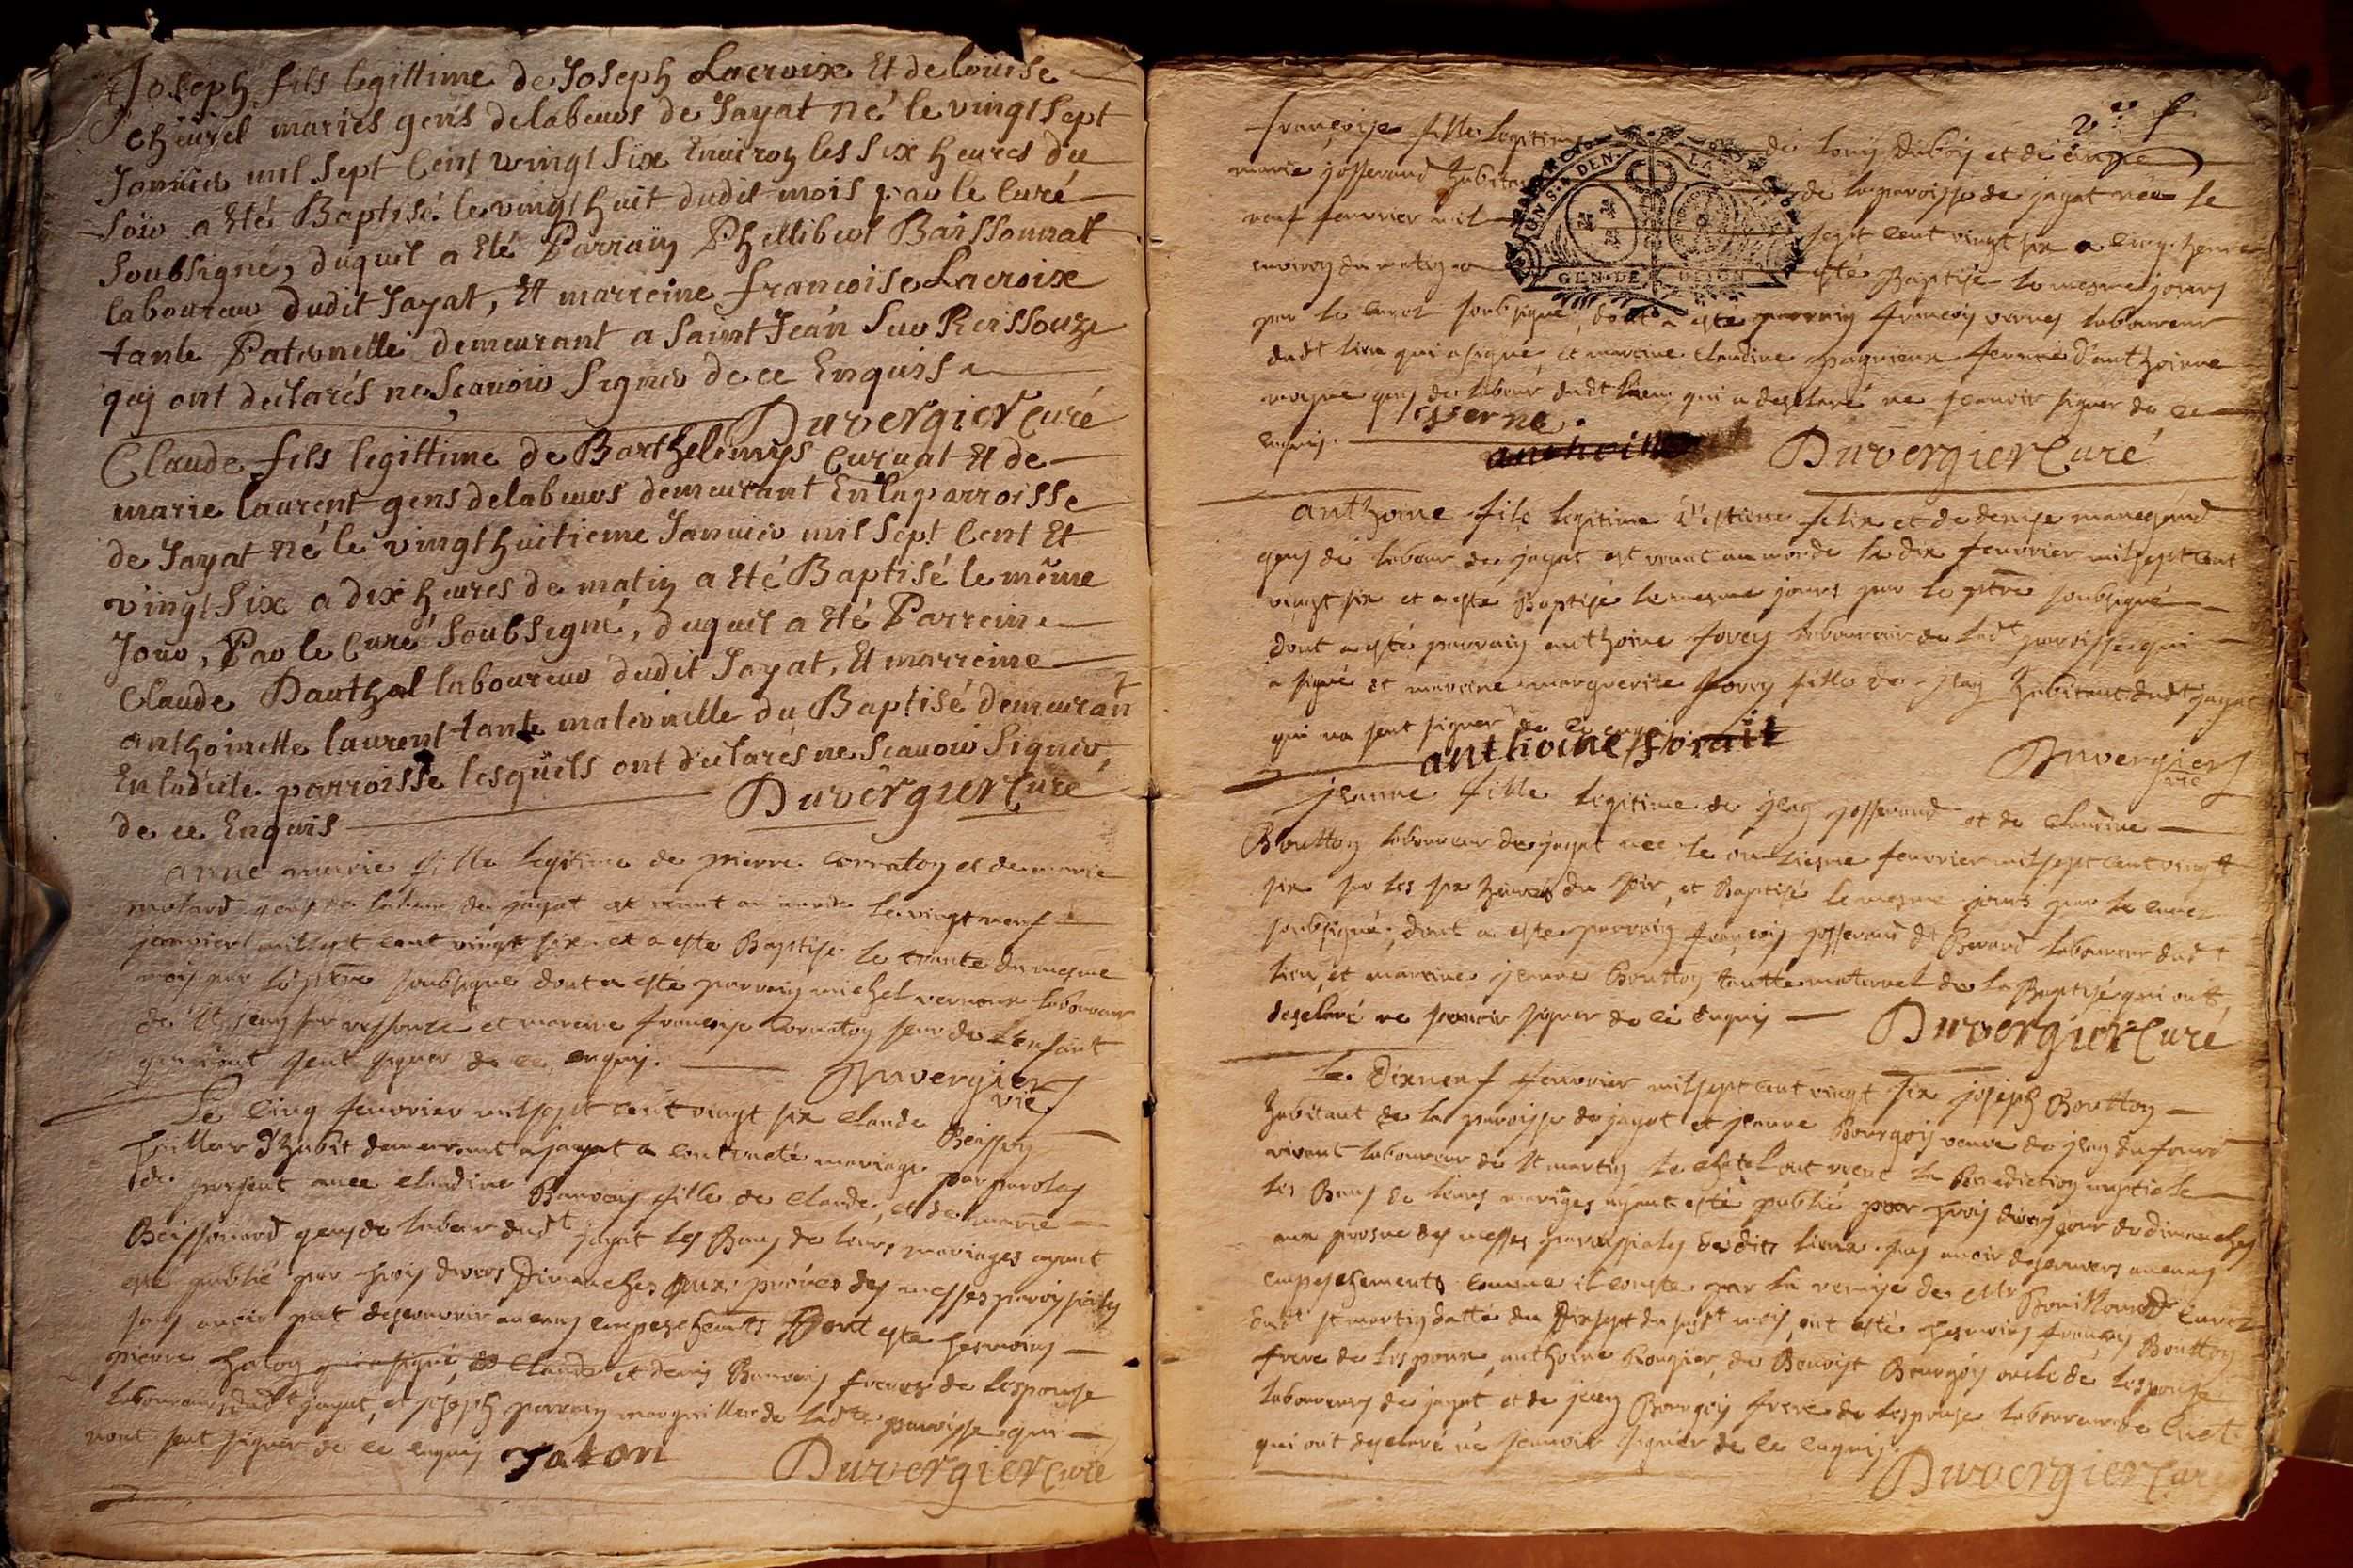 Joseph fils legittime de Joseph Lacroix Et de Loüise
cheürel mariés gens delabeurs de Jayat né le vingt Sept
Januier mil Sept Cent vingt Six Enuiron les Six heures du
Soir a Eté Baptisé le vingt huit dudit mois par le Curé
Soubsigné, duquel a Eté Parrain Phillibert Baissonnat
laboureur dudit Jayat, Et marreine francoise Lacroix
tante Paternelle demeurant a Saint Jean Sur Reissouze
qui ont déclarés ne Scauoir Signer de ce Enquis
Duvergier Curé
Claude fils legittime de Barthelemys Curuat Et de
marie laurent gens delabeurs demeurant En la parroisse
de Jayat né le vingt huitieme Januier mil Sept Cent Et
vingt Six a dix heures de matin a Eté Baptisé le même
Jour, Par le Curé Soubsigné, duquel a Eté Parrein
Claude Dauthal laboureur dudit Jayat, Et marreine
anthoinette laurent tante maternelle du Baptisé demeurant
En ladite parroisse lesquels ont déclarés ne Scauoir Signer,
de ce Enquis
Duvergier Curé
anne marie fille legitime de pierre Corraton et de marie
molard gens de labeur de jayat est venut au monde le vingt neuf
janvier mil sept cent vingt six et a este Baptisé le trante du mesme
mois par le ptre soubsigné dont a esté parrain michel vernoux laboureur
de st jean sur ressouze et mareine francoise Corraton seur de l'enfant
qui n'ont seut signer de ce enquis.
Duvergier
vic
Le cinq feuvrier mil sept cent vingt six claude Boisson
tailleur d'habit demeurant a jayat a contracté mariage par paroles
de present avec claudine Bauvais fille de claude, et de marie
Boissonard gens de labeur dudt jayat les Bans de leurs mariages ayant
esté publié par trois divers Dimanches aux prônes des messes paroissiales
sans avoir put descouvrir aucuns empeschements Dont este tesmoins
pierre Jaton qui a signé, claude et denis Bauvais freres de lespouse
laboureurs dudt jayat, et joseph perrain marguillier de ladte paroisse qui
nont seut signer de ce enquis
Jaton
Duvergier Curé
2e f
françoise fille legitime de louis dubois et de
marie josserand habitans de la paroisse de jayat née le
neuf feuvrier mil sept cent vingt six a cinq heures
environ du matin a esté Baptisé le mesme jours
GEN. DE DIJON
par le curez soubsigné, dont a este parrain francois verney laboureur
dudt lieu qui a signé, et mareine claudine pagnieux femme d'anthoinne
moyne gens de labeur dudt lieu qui a desclaré ne scavoir signer de ce
enquis.
verne.
Duvergier Curé
anthoine fils legitime d'estiene felix et de denise manegand
gens de labeur de jayat est venut au monde le dix feuvrier mil sept cent
vingt six et a este Baptisé le mesme jours par le ptre soubsigné
dont a esté parrain anthoine forey laboureur de ladt paroisse qui
a signé et mareine marguerite forey fille de jean habitant dudt jayat
qui na seut signer de ce enquis
anthoine forait
Duvergier
vic
jeanne fille legitime de jean josserand et de claudine
Boutton laboureur de jayat nee le onziesme feuvrier mil sept cent vingt
six sur les six heures du soir, et Baptisé le mesme jours par le curez
soubsigné, dont a este parrain francois josserand dt Berard laboureur dudt
lieu, et mareine jeanne Boutton tantte maternel de la Baptisé qui ont
desclaré ne scavoir signer de ce enquis
Duvergier Curé
Le Dixneuf feuvrier mil sept cent vingt six joseph Boutton
habitant de la paroisse de jayat et jeanne Bourgois veuve de jean dufour
vivant laboureur de st martin le chatel ont receut la Benediction nuptiale
les Bans de leurs mariges ayant esté publié par trois divers jour de dimanches
aux prosne des messes paroissiales desdits lieux sans avoir descouvers aucuns
empeschements comme il conste par la remise de estr Bouillamoz curez
dudt st martin datté du Dixsept du susdt mois, ont esté tesmoins francois Boutton
frere de lespoux, anthoine Rongier, de Benoist Bourgois oncle de lespouse
laboureurs de jayat et de jean Bourgois frere de lespouse laboureur de Cuet
qui ont desclaré ne scavoir signer de ce enquis.
Duvergier Curé